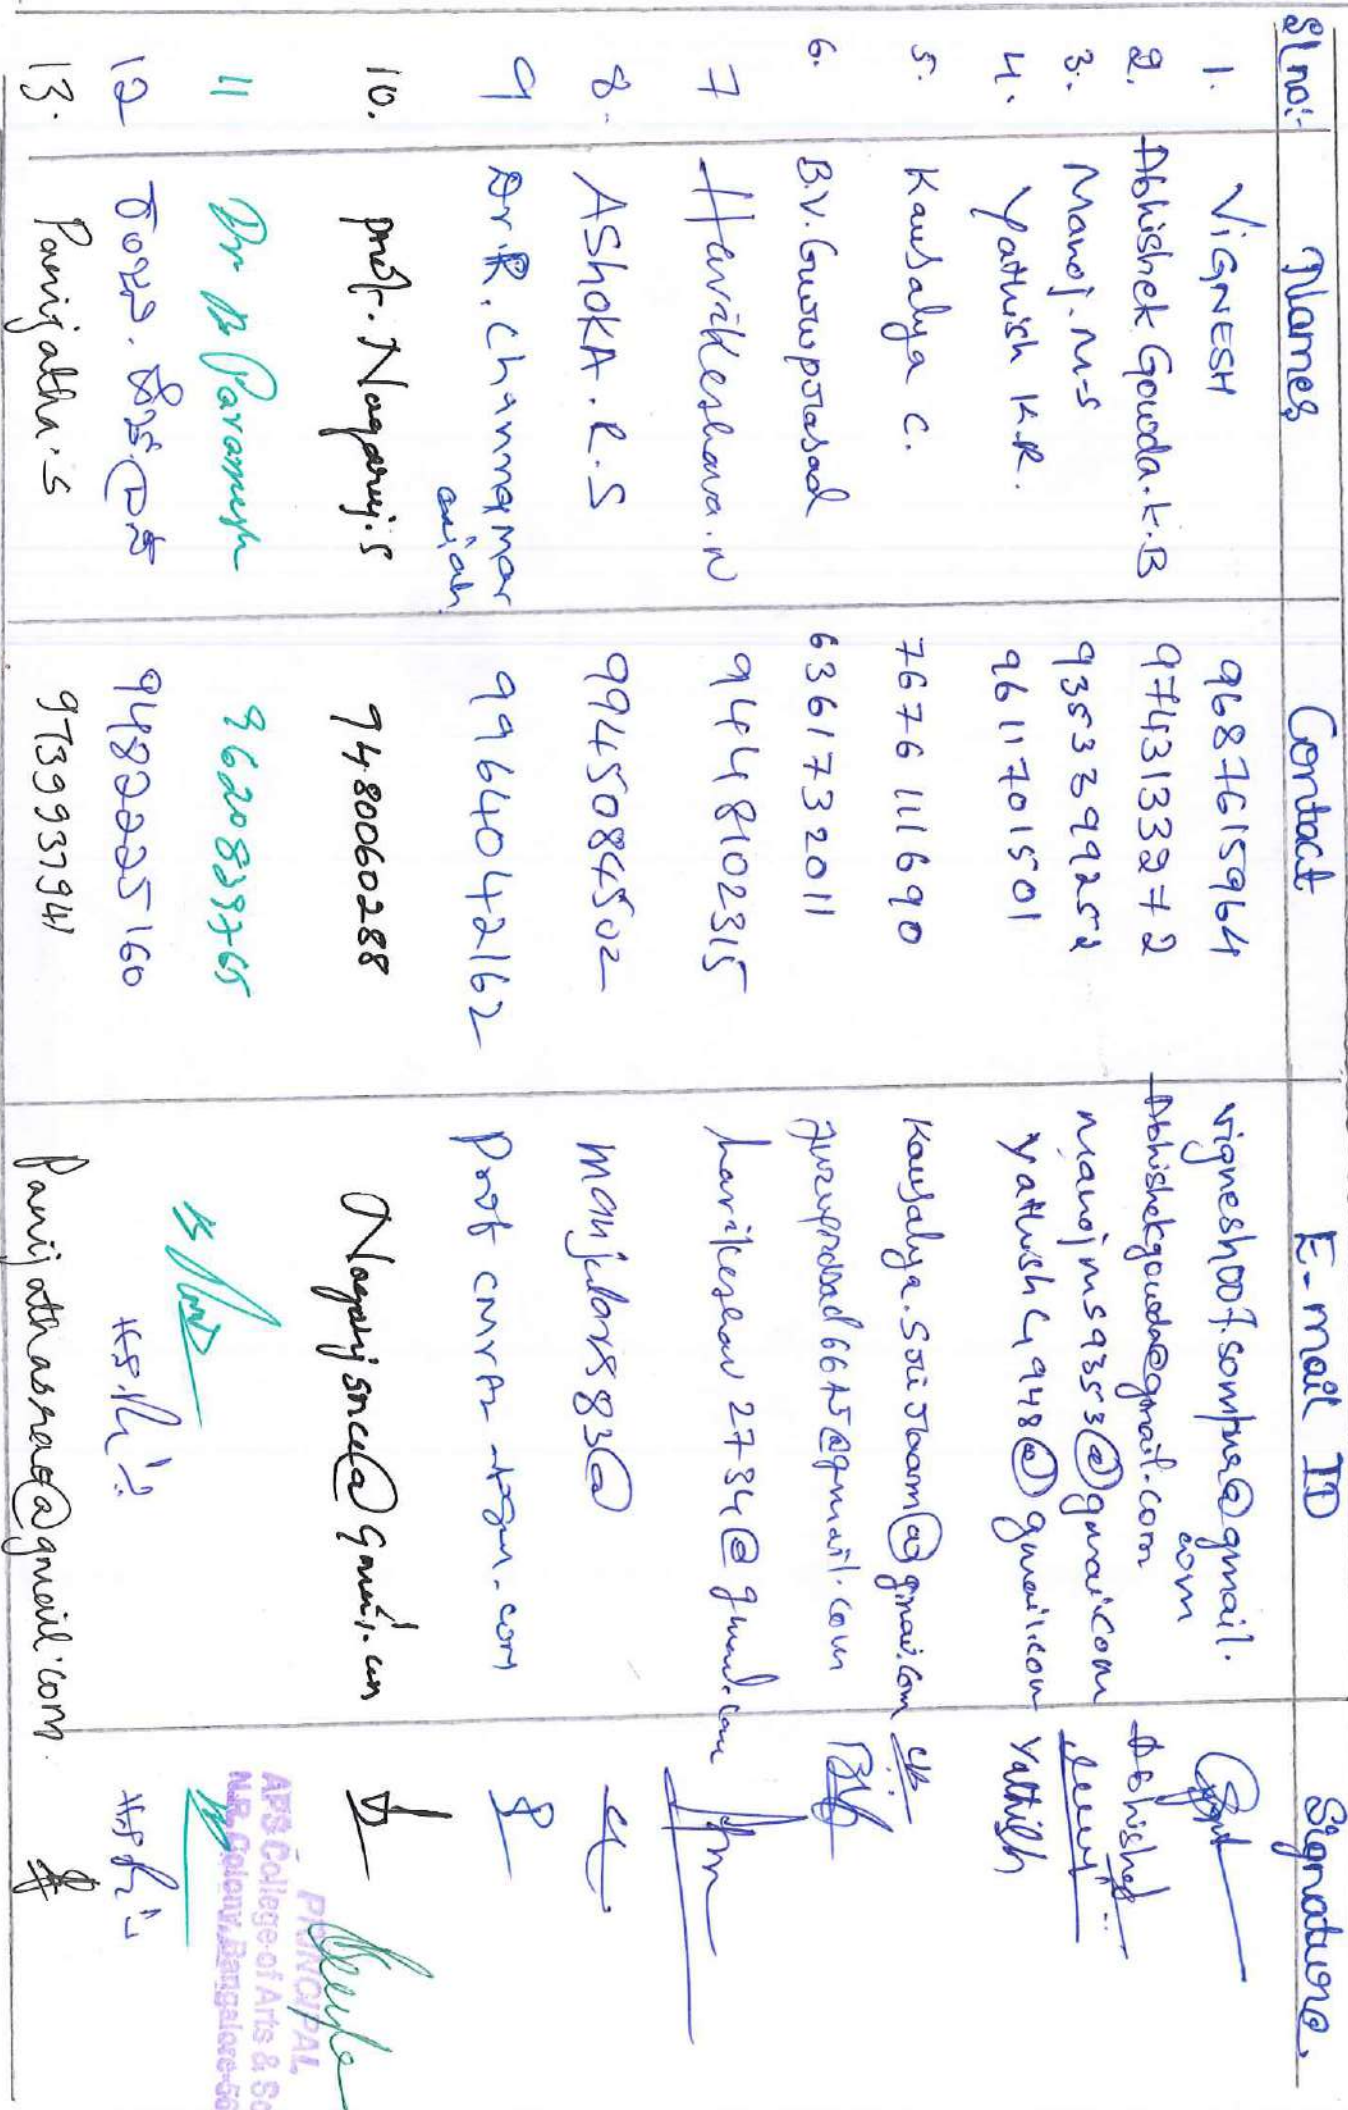 Sl no:- Names Contact E-mail ID Signature.
1. ViGNESH 9687615964 vignesh007.sompura@gmail.
com
2. Abhishek Gowda.K.B 9743133272 Abhishekgowda@gmail.com Abhishek
3. Manoj.M-S 9353399252 manojms9353@gmai.com
4. Yathish K.R. 96117015501 Yathish4948@gmail.com Yathish
5. Kausalya C. 7676111690 Kausalya.Sriraam@gmai.com
6. B.V.Guruprasad 6361732011 guruprasad6675@gmail.com
7 Harikeshava.N 9448102315 harikeshav2734@gmail.com
8. AShOKA.R.S 9945084502 manjulars83@
9 Dr R. Channamar 9964042162 Prof
aiah
10. prof. Nagaraj.S 9480060288
11 Dr B Paramesh 9620833765
12 9482225160
13. Parijatha.S 9739937941 Parijathasrao@gmail.com.
PRINCIPAL
APS College of Arts & Sc
N.R.Colony, Bangalore-56